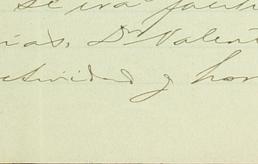 se irá
rias, Dn Valent
ctividad y hon